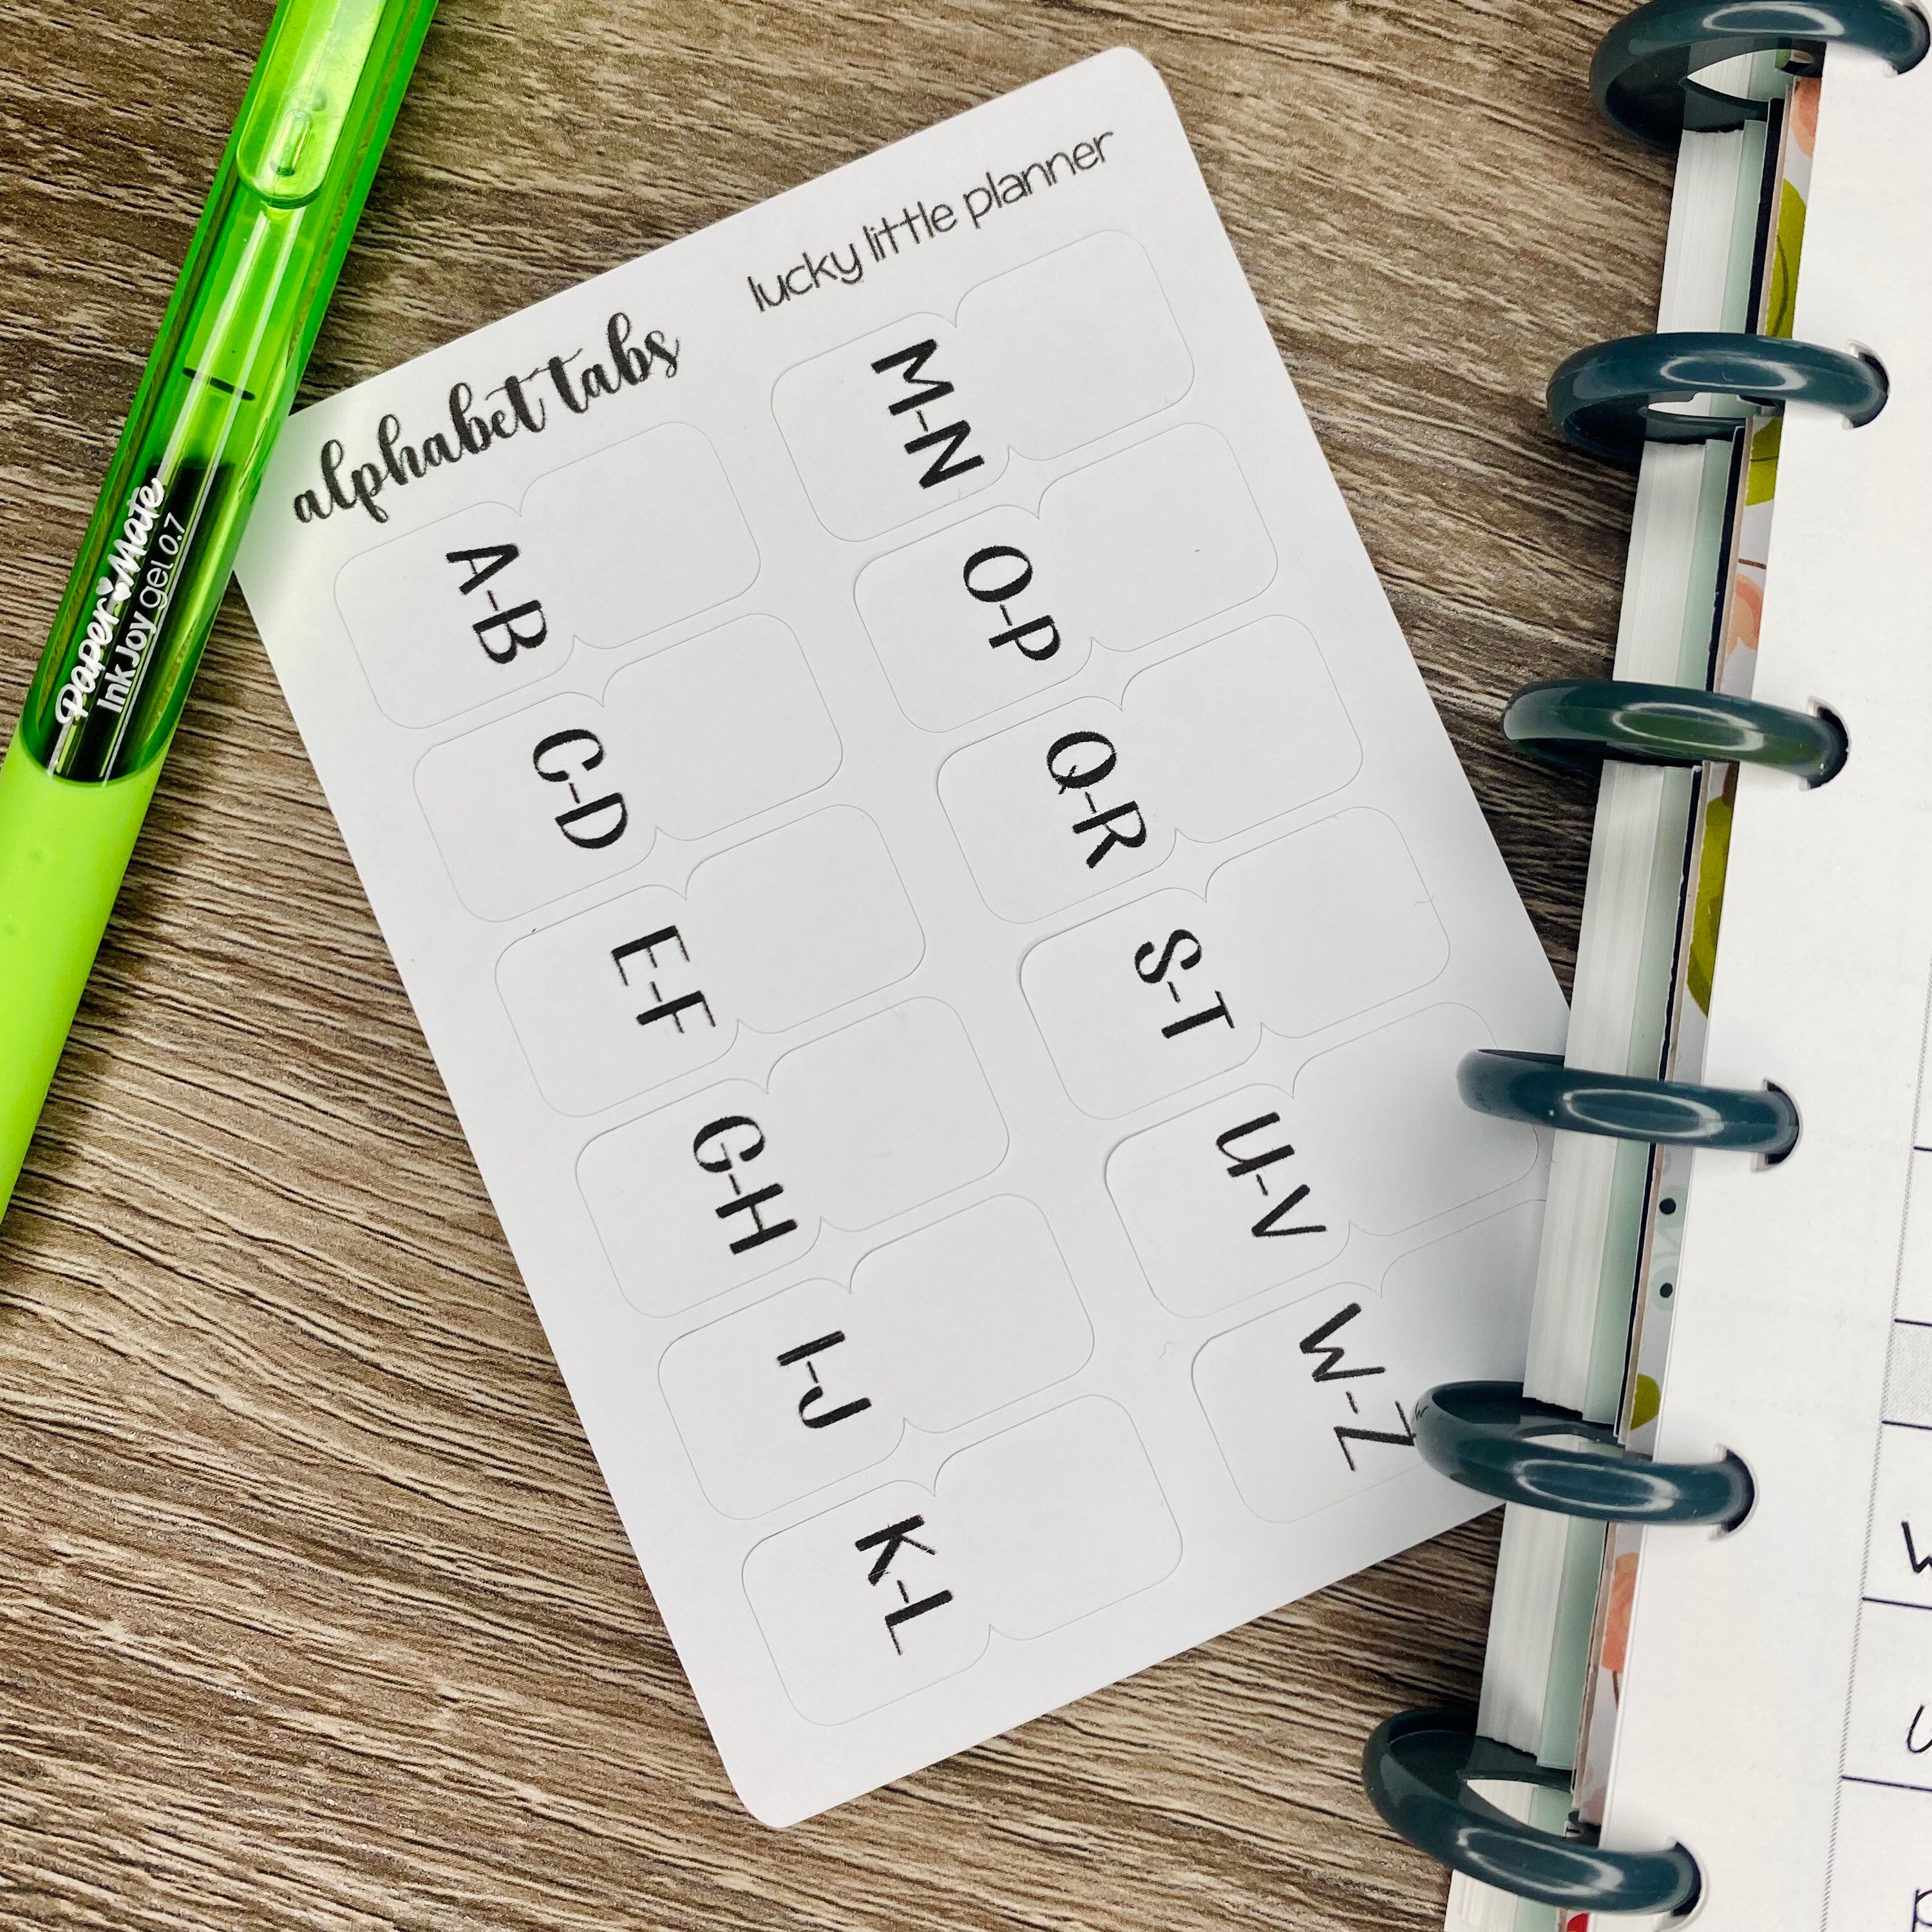 alphabet tabs
lucky little planner
A-B
C-D
E-F
G-H
I-J
K-L
M-N
O-P
Q-R
S-T
U-V
W-Z
Paper Mate
InkJoy gel 0.7